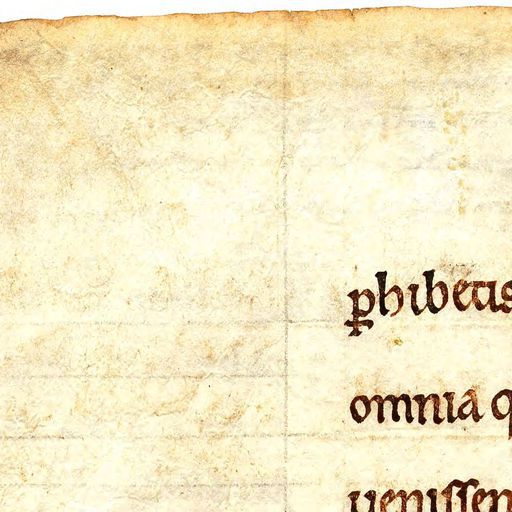 ꝑhibetis
omnia q
uenissen